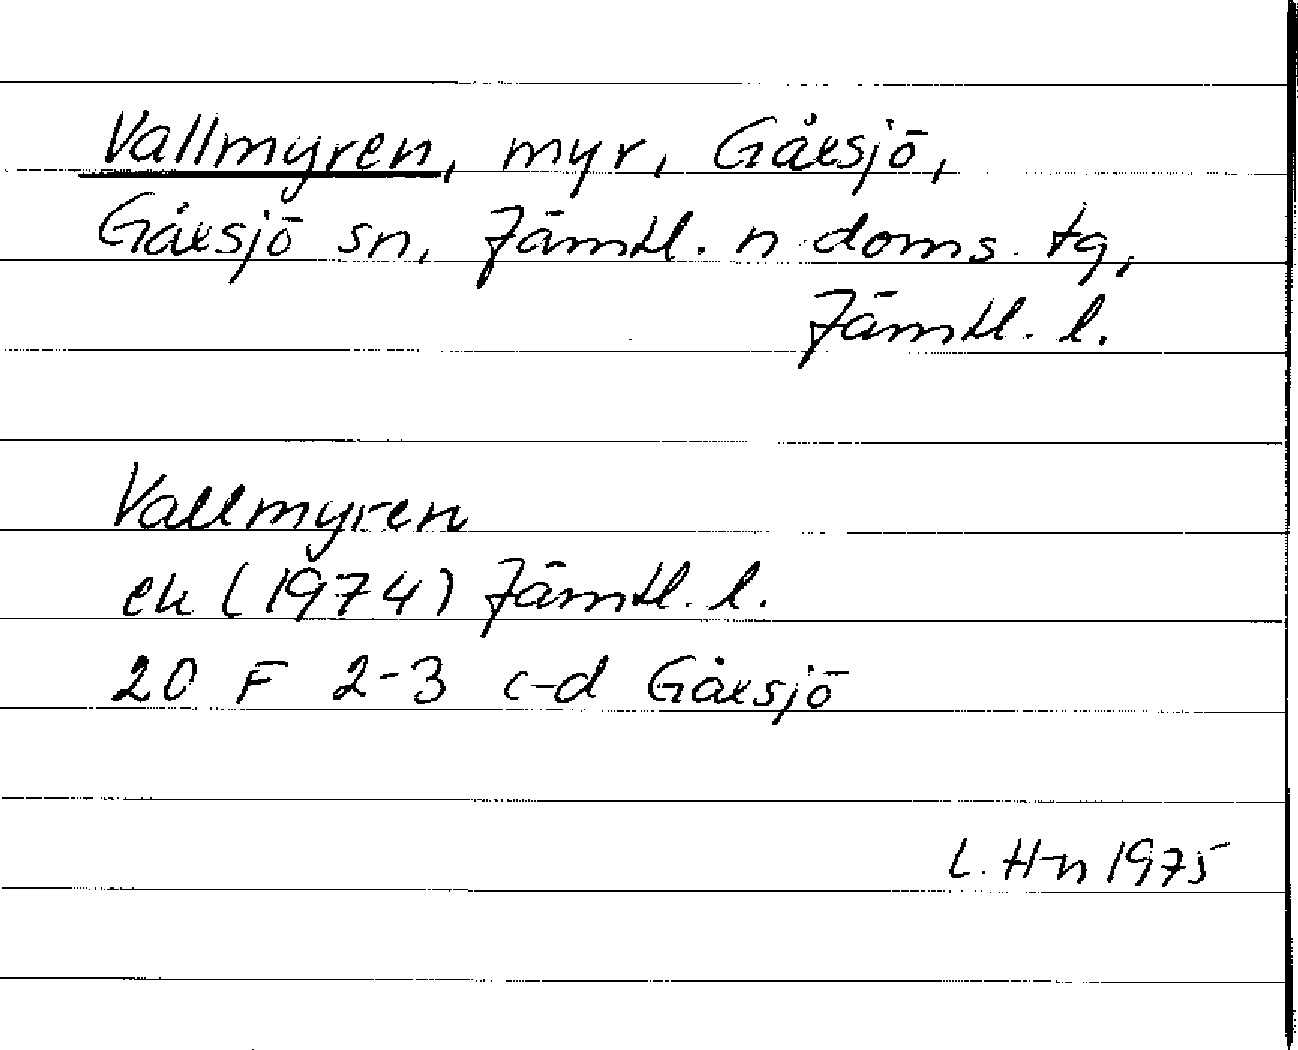 Vallmyren, myr, Gåxsjö,
Gåxsjö sn, Jämtl. n doms. tg,
Jämtl. l.
Vallmyren
ek (1974) Jämtl. l.
20 F 2-3 c-d Gåxsjö
L. H-n 1975